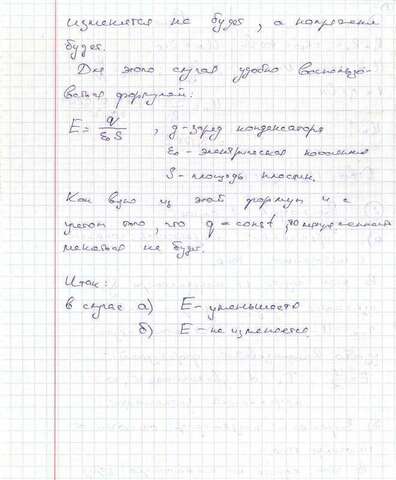 изменятся не будет, а напряжение
будет.
Для этого случая удобно воспользо-
ваться формулой:
E = q/ε₀S , q - заряд конденсатора
ε₀ - электрическая постоянная
S - площадь пластин.
Как видно из этой формулы и с
учетом того, что q = const, напряженность
меняться не будет.
Итак:
в случае а) E - уменьшается
б) E - не изменяется